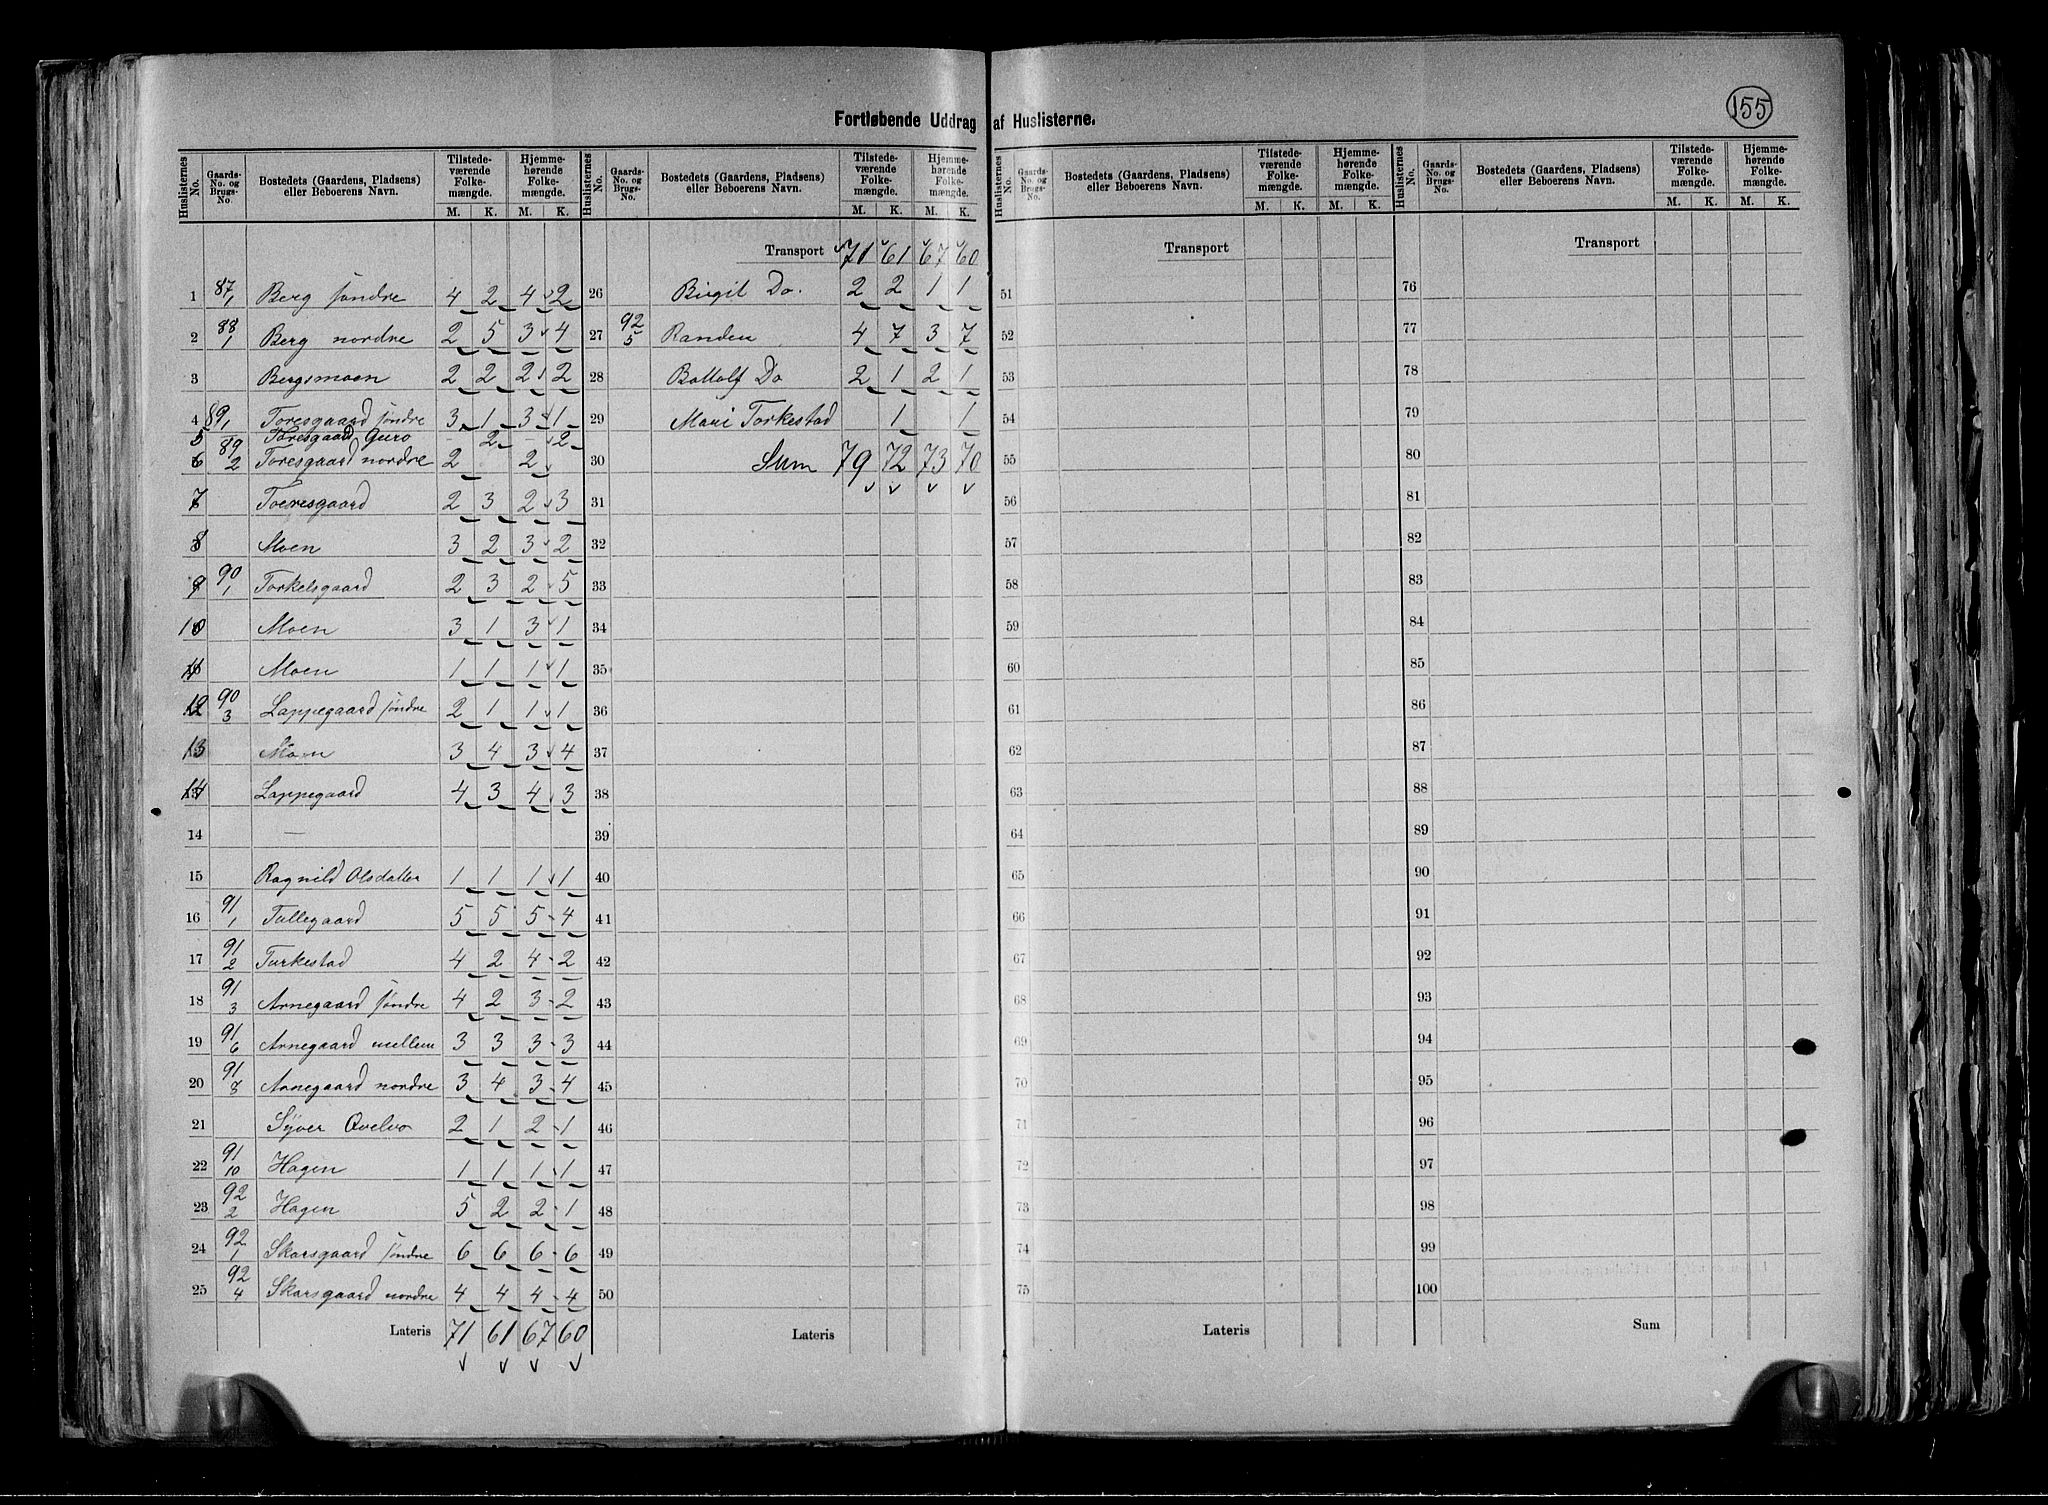 155
Fortløbende Uddrag af Huslisterne.
Huslisternes No. Gaards-No. og Brugs-No. Bostedets (Gaardens, Pladsens) eller Beboerens Navn. Tilstede-værende Folke-mængde. Hjemme-hørende Folke-mængde. M. K. M. K.
1 87/1 Berg søndre 4 2 4 2
2 88/1 Berg nordre 2 5 3 4
3 Bergsmoen 2 2 2 2
4 89/1 Toresgaard søndre 3 1 3 1
5 Toresgaard Guro - 2 - 2
6 89/2 Toresgaard nordre 2 2
7 Toeresgaard 2 3 2 3
8 Moen 3 2 3 2
9 90/1 Torkelsgaard 2 3 2 5
10 Moen 3 1 3 1
11 Moen 1 1 1 1
12 90/3 Lappegaard søndre 2 1 1 1
13 Moen 3 4 3 4
14 Lappegaard 4 3 4 3
14 —
15 Ragnild Olsdatter 1 1 1 1
16 91/1 Tullegaard 5 5 5 4
17 91/2 Turkestad 4 2 4 2
18 91/3 Arnegaard søndre 4 2 3 2
19 91/6 Arnegaard mellem 3 3 3 3
20 91/8 Arnegaard nordre 3 4 3 4
21 Syver Qvelvo 2 1 2 1
22 91/10 Hagen 1 1 1 1
23 92/2 Hagen 5 2 2 1
24 92/1 Skarsgaard søndre 6 6 6 6
25 92/4 Skarsgaard nordre 4 4 4 4
Lateris 71 61 67 60
Huslisternes No. Gaards-No. og Brugs-No. Bostedets (Gaardens, Pladsens) eller Beboerens Navn. Tilstede-værende Folke-mængde. Hjemme-hørende Folke-mængde. M. K. M. K.
Transport 71 61 67 60
26 Birgit Do. 2 2 1 1
27 92/5 Randen 4 7 3 7
28 Bottolf Do 2 1 2 1
29 Mari Torkestad 1 1
30 Sum 79 72 73 70
31
32
33
34
35
36
37
38
39
40
41
42
43
44
45
46
47
48
49
50
Lateris
Huslisternes No. Gaards-No. og Brugs-No. Bostedets (Gaardens, Pladsens) eller Beboerens Navn. Tilstede-værende Folke-mængde. Hjemme-hørende Folke-mængde. M. K. M. K.
Transport
51
52
53
54
55
56
57
58
59
60
61
62
63
64
65
66
67
68
69
70
71
72
73
74
75
Lateris
Huslisternes No. Gaards-No. og Brugs-No. Bostedets (Gaardens, Pladsens) eller Beboerens Navn. Tilstede-værende Folke-mængde. Hjemme-hørende Folke-mængde. M. K. M. K.
Transport
76
77
78
79
80
81
82
83
84
85
86
87
88
89
90
91
92
93
94
95
96
97
98
99
100
Sum